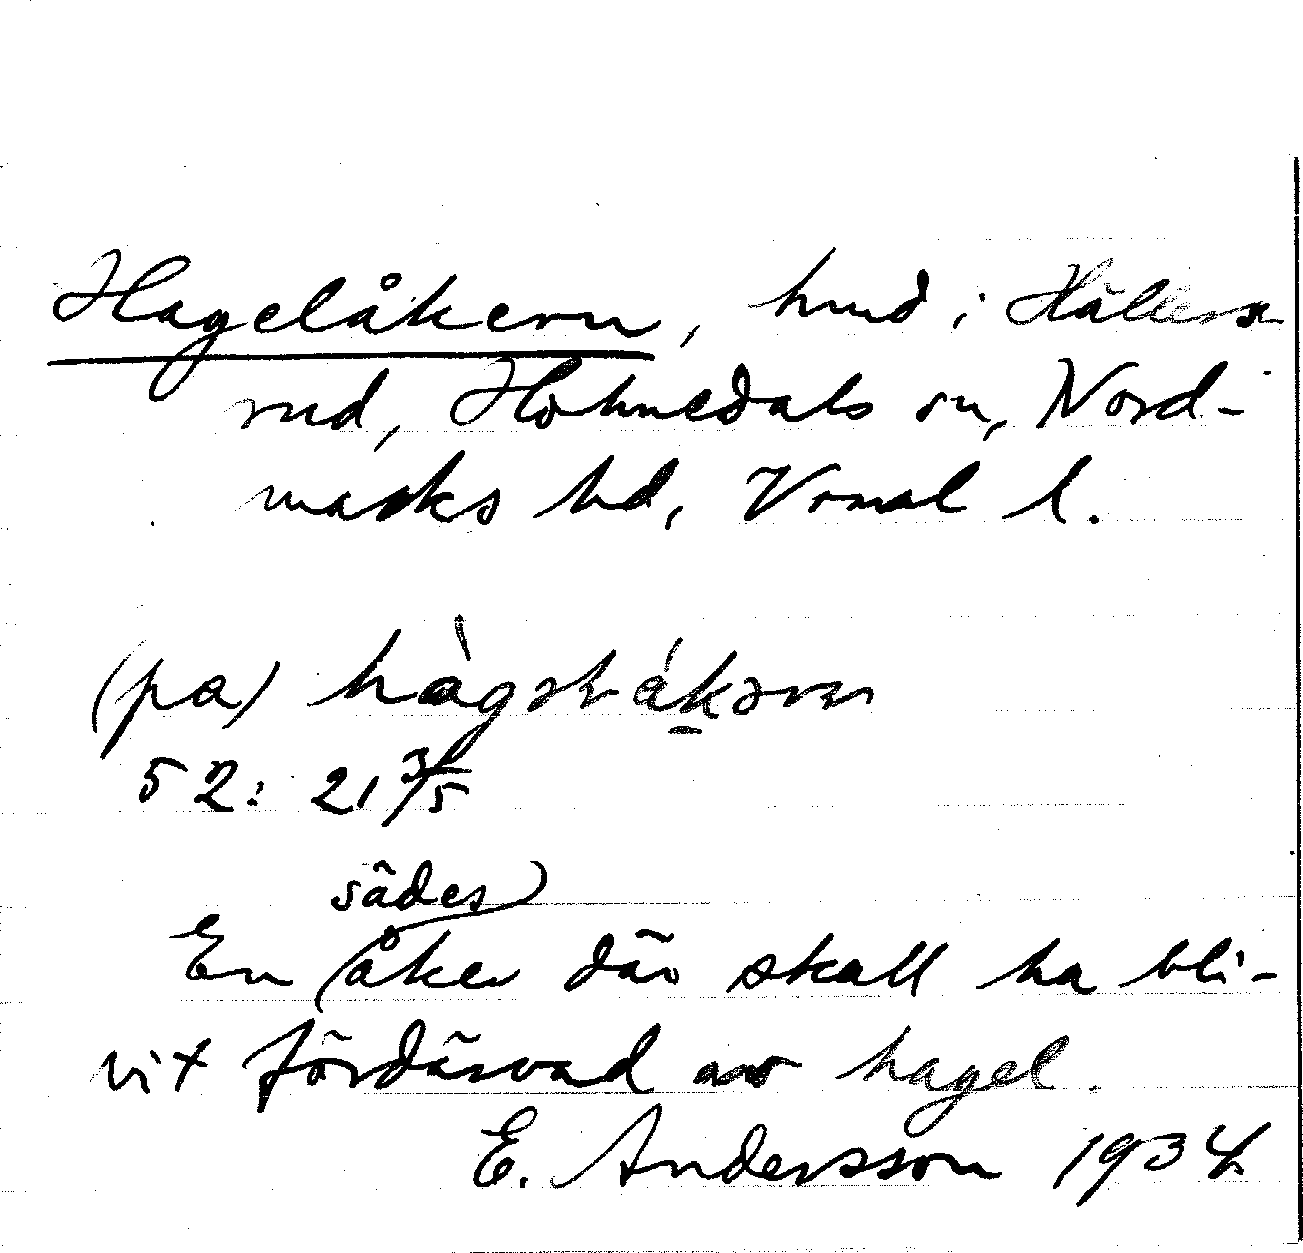 Hagelåkern, hmd i Hällers-
rud, Holmedals sn, Nord-
marks hd, Vrml l.
(pa)
52: 21 3/5
sädes
En åker där skall ha bli-
vit fördärvad av hagel.
E. Andersson 1934